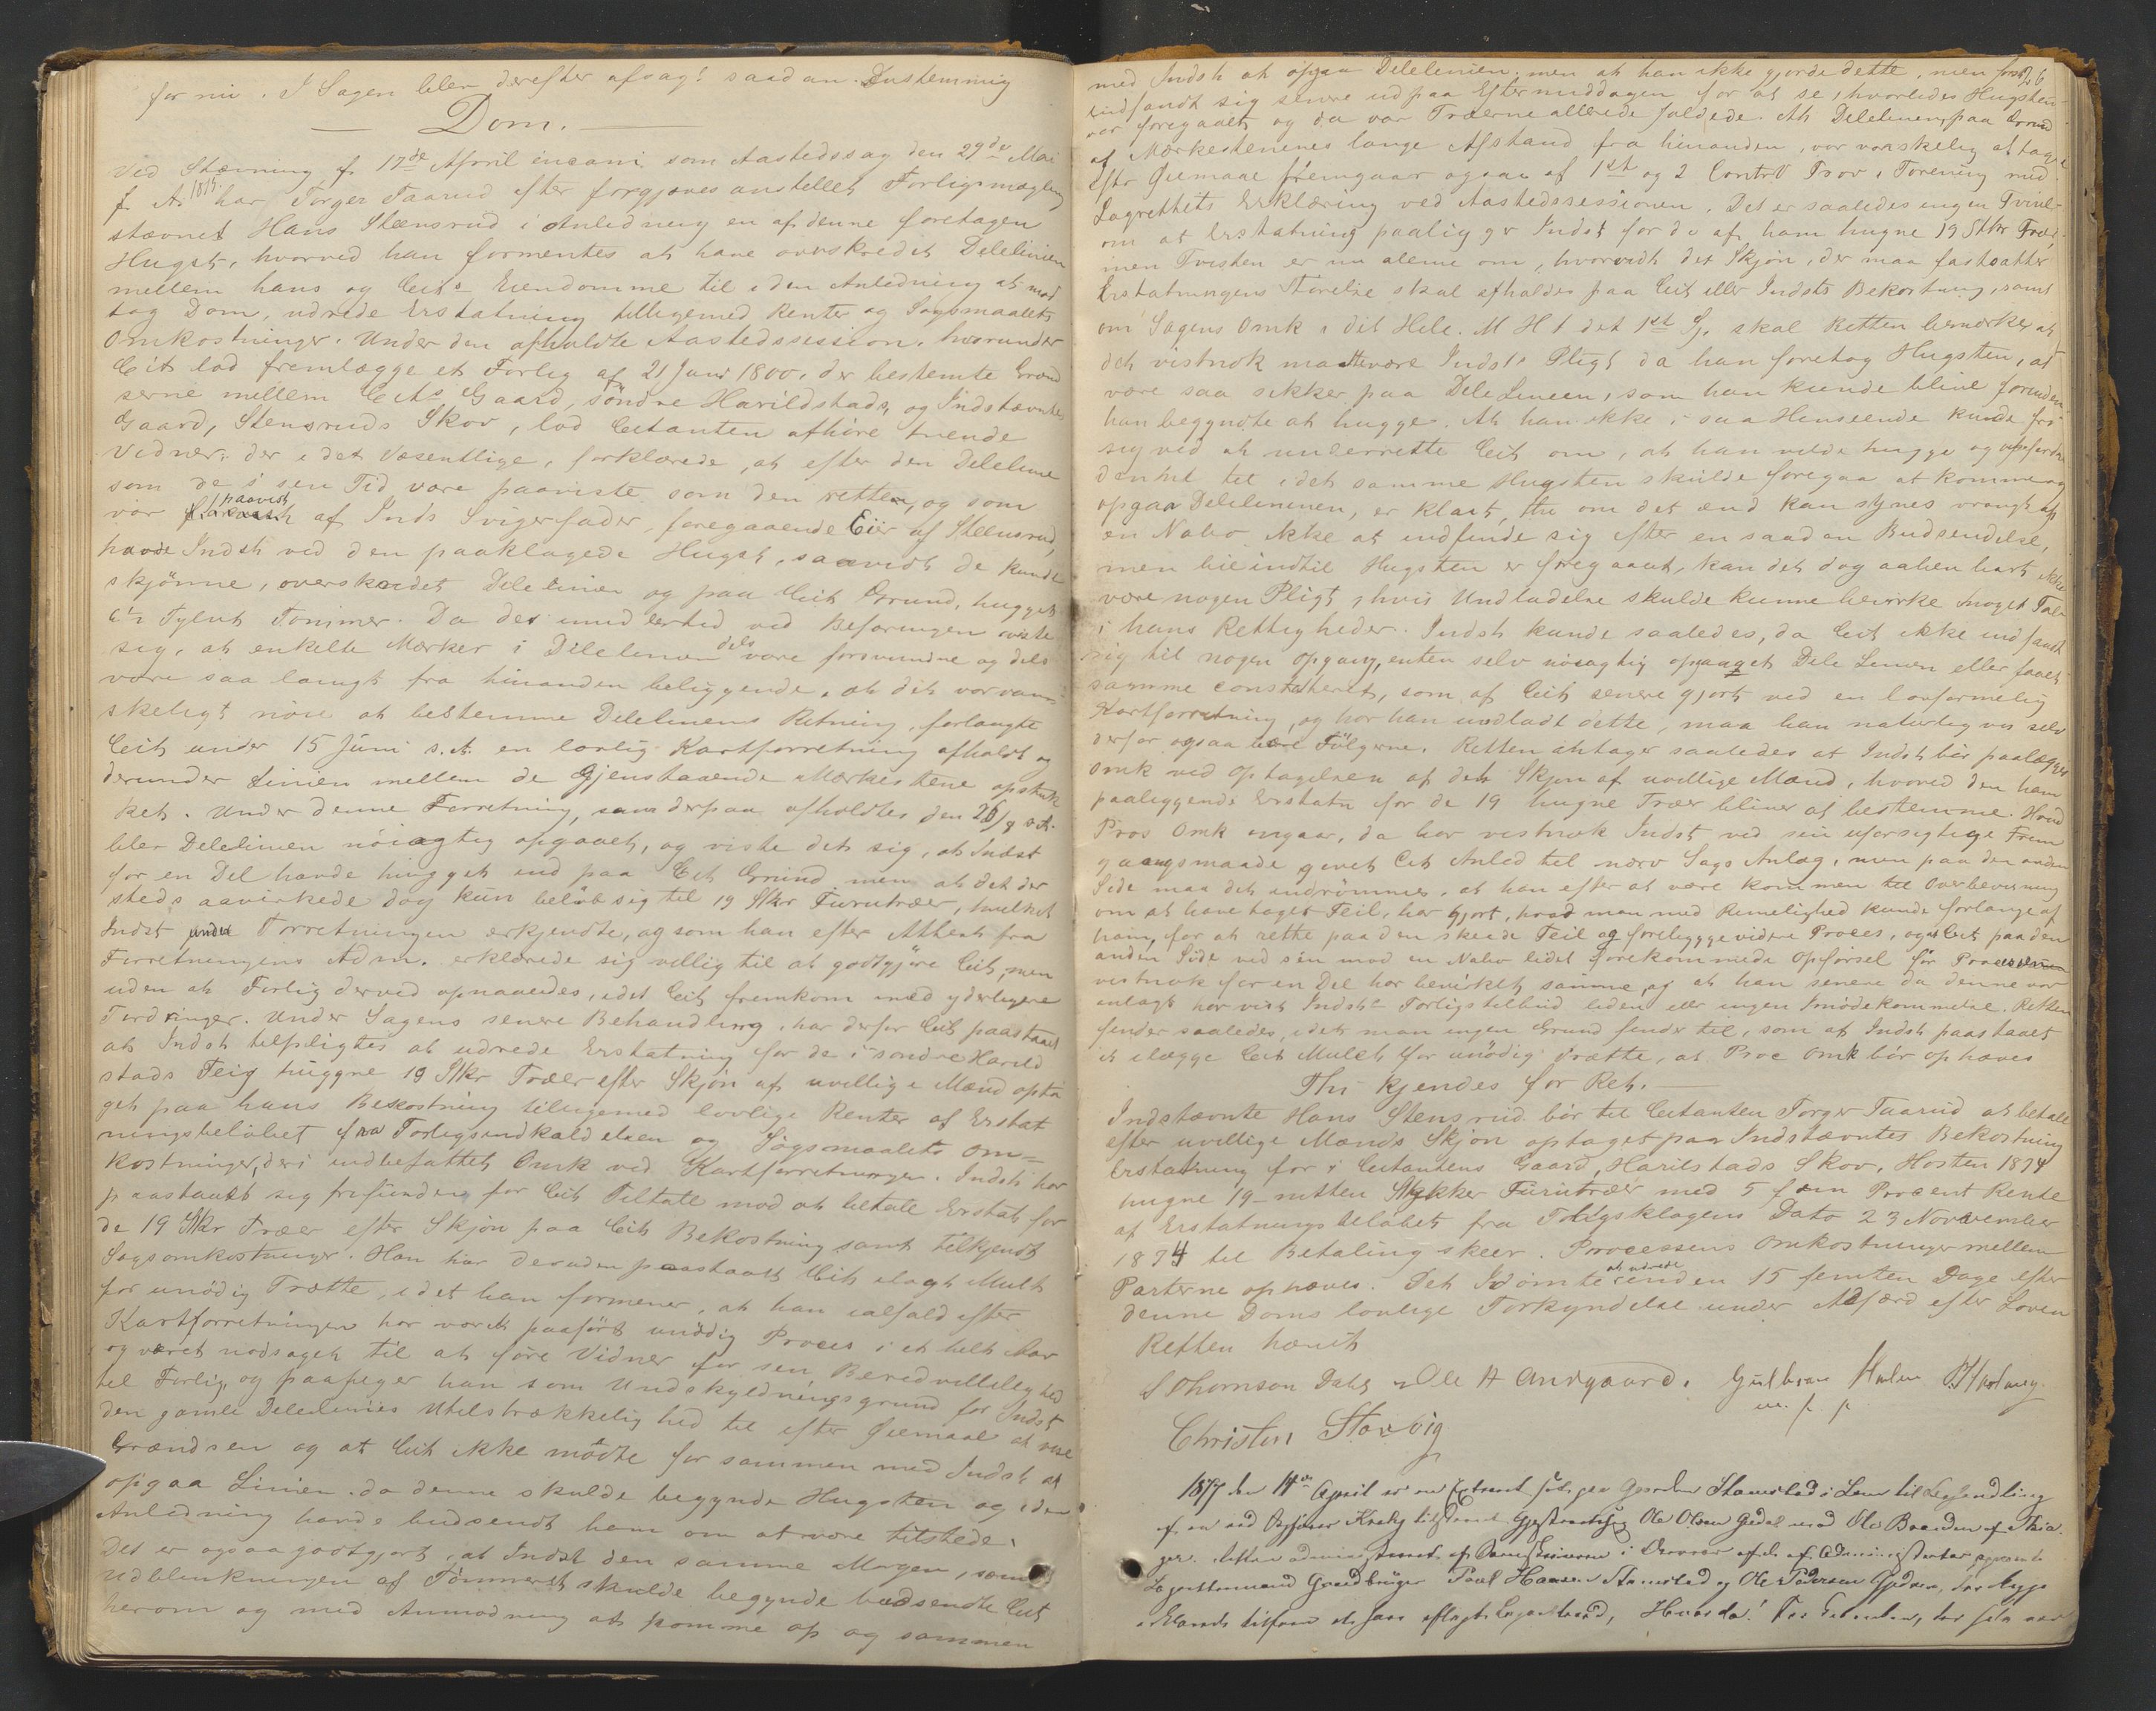 for nu. I Sagen blev derefter afsagt saadan Enstemmig
Dom.
Ved Stævning f. 17de April incam. som Aastedssag den 29de Mai
f. A. 1875. har Torger Taarud efter forgjæves anstillet Forligsmægling
stævnet Hans Stensrud i Anledning en af denne foretagen
Hugst, hvorved han formentes at have overskredet Delelinien
mellem hans og Cit's Eiendomme til i den Anledning at mod
tag Dom, udrede Erstatning tilligemed Renter og Søgsmaalets
Omkostninger. Under den afholdte Aastedssession, hvorunder
Cit lod fremlægge et Forlig af 21 Juni 1800, der bestemte Grænd
serne mellem Cits Gaard, søndre Harildstads, og Indstævntes
Gaard, Stensruds Skov, lod Citanten afhøre tvende
Vidner, der i det Væsentlige, forklarede, at efter den Delelinie
som de i sin Tid vare paaviste som den rette, og som
var paavist af Inds Svigerfader, foregaaende Eier af Steensrud,
havde Indst ved den paaklagede Hugst, saavidt de kunde
skjønne, overskredet Delelinien og paa Cits Grund, hugget
6½ Tylvt Tømmer. Da det imidlertid ved Befaringen viste
sig, at enkelte Mærker i Delelinien dels vare forsvundne og dels
vare saa langt fra hinanden beliggende, at det var van-
skeligt nøie at bestemme Deleliniens Retning, forlangte
Cit under 15 Juni s. A. en lovlig Kartforretning afholdt og
derunder Linien mellem de gjenstaaende Mærkestene opstuk
ket. Under denne Forretning, som derpaa afholdtes den 26/8 s.A.
blev Delelinien nøiagtig opgaaet, og viste det sig, at Indst
for en Del havde hugget ind paa Cits Grund men at det der
steds aavirkede dog kun beløb sig til 19 Stkr Furutræer, hvilket
Indst under Forretningen erkjendte, og som han efter Attest fra
Forretningens Adm. erklærede sig villig til at godtgjøre Cit, men
uden at Forlig derved opnaaedes, idet Cit fremkom med yderligere
Fordringer. Under Sagens senere Behandling, har derfor Cit paastaaet
at Indst tilpligtes at udrede Erstatning for de i søndre Harild
stads Teig hugne 19 Stkr Træer efter Skjøn af uvillige Mænd opta
get paa hans Bekostning tilligemed lovlige Renter af Erstat
ningsbeløbet fra Forligsindkaldelsen og Søgsmaalets Om=
kostninger, deri indbefattet Omk ved Kartforretningen. Indst har
paastaaet sig frifunden for Cits Tiltale mod at betale Erstat. for
de 19 Stkr Træer efter Skjøn paa Cits Bekostning samt tilkjendt
Sagsomkostninger. Han har desuden paastaaet Cit ilagt Mulct
for unødig Trætte, idet han formener, at han ialfald efter
Kartforretningen har været paaført unødig Proces i et helt Aar
og været nødsaget til at føre Vidner for sin Beredvillighed
til Forlig, og paapeger han som Undskyldningsgrund for Indst
den gamle Delelinies Utilstrækkelighed til efter Øiemaal at vise
Grændsen og at Cit ikke mødte for sammen med Indst at
opgaa Linien, da denne skulde begynde Hugsten og i den
Anledning havde budsendt ham om at være tilstede.
Det er ogsaa godtgjort, at Indst den samme Morgen, som
Udblinkningen af Tømmeret skulde begynde budsendte Cit
herom og med Anmodning at komme op og sammen
26
med Indst at opgaa Delelinien, men at han ikke gjorde dette, men først
indfandt sig senere ud paa Eftermiddagen for at se, hvorledes Hugsten
var foregaaet, og da var Træerne allerede fældede. At Delelinien, paa Grund
af Mærkestenenes lange Afstand fra hinanden, var vanskelig at tage
efter Øiemaal fremgaar ogsaa af 1ste og 2 Contra V Prov i Forening med
Lagrettets Erklæring ved Aastedssessionen. Det er saaledes ingen Tvivl
om at Erstatning paaligger Indst for de af ham hugne 19 Stkr Træer
men Tvisten er nu alene om, hvorvidt det Skjøn, der maa fastsætte
Erstatningens Størelse skal afholdes paa Cits eller Indsts Bekostning, samt
om Sagens Omk i det Hele. M H t det 1ste Sp. skal Retten bemærke, at
det vistnok maatte være Indsts Pligt da han foretog Hugsten, at
være saa sikker paa DeleLinien, som han kunde blive forinden
han begyndte at hugge. At han ikke i saa Henseende kunde fri
sig ved at underrette Cit om, at han vilde hugge og opfordre
denne til i det samme Hugsten skulde foregaa at komme og
opgaa Delelinien, er klart, thi om det end kan synes vrangt af
en Nabo ikke at indfinde sig efter en saadan Budsendelse,
men bie indtil Hugsten er foregaaet, kan det dog aabenbart ikke
være nogen Pligt, hvis Undladelse skulde kunne bevirke noget Tab
i hans Rettigheder. Indst kunde saaledes, da Cit ikke indfandt
sig til nogen Opgang, enten selv nøiagtig opgaaet Dele Linien eller faaet
samme constateret, som af Cit senere gjort ved en lovformelig
Kartforretning, og har han undladt dette, maa han naturligvis selv
derfor ogsaa bære Følgerne. Retten antager saaledes at Indst bør paalægges
Omk ved Optagelsen af det Skjøn af uvillige Mænd, hvorved den ham
paaliggende Erstatn for de 19 hugne Træer bliver at bestemme. Hvad
Pros Omk angaar, da har vistnok Indst ved sin uforsigtige Frem
gaangsmaade givet Cit Anled til nærv Sags Anlæg, men paa den anden
Side maa det indrømmes, at han efter at være kommen til Overbevisning
om at have taget Feil, har gjort, hvad man med Rimelighed kunde forlange af
ham, for at rette paa den skeede Feil og forebygge videre Proces, og at Cit paa den
anden Side ved sin mod en Nabo lidet forekommende Opførsel før Processen
vistnok for en Del har bevirket samme, og at han senere da denne var
anlagt har vist Indsts Forligstilbud liden eller ingen Imødekommelse. Retten
finder saaledes, idet man ingen Grund finder til, som af Indst paastaaet
at ilægge Cit Mulct for unødig Trætte, at Proc Omk bør ophæves
Thi kjendes for Ret.
Indstævnte Hans Stensrud bør til Citanten Torger Taarud at betale
efter uvillige Mænds Skjøn optaget paa Indstævntes Bekostning
Erstatning for i Citantens Gaard, Harilstads Skov, Høsten 1874
hugne 19-nitten Stykker Furutræer med 5 fem Procent Rente
af Erstatningsbeløbet fra Forligsklagens Dato 23 November
1874 til Betaling skeer. Processens Omkostninger mellem
Parterne ophæves. Det Idømte at udrede inden 15 femten Dage efter
denne Doms lovlige Forkyndelse under Adfærd efter Loven
Retten hævet
S Thomson Dahl Ole H Aurgaard. Gulbran Holm
m. f. p.
Christen Storvig
1877 den 14de April